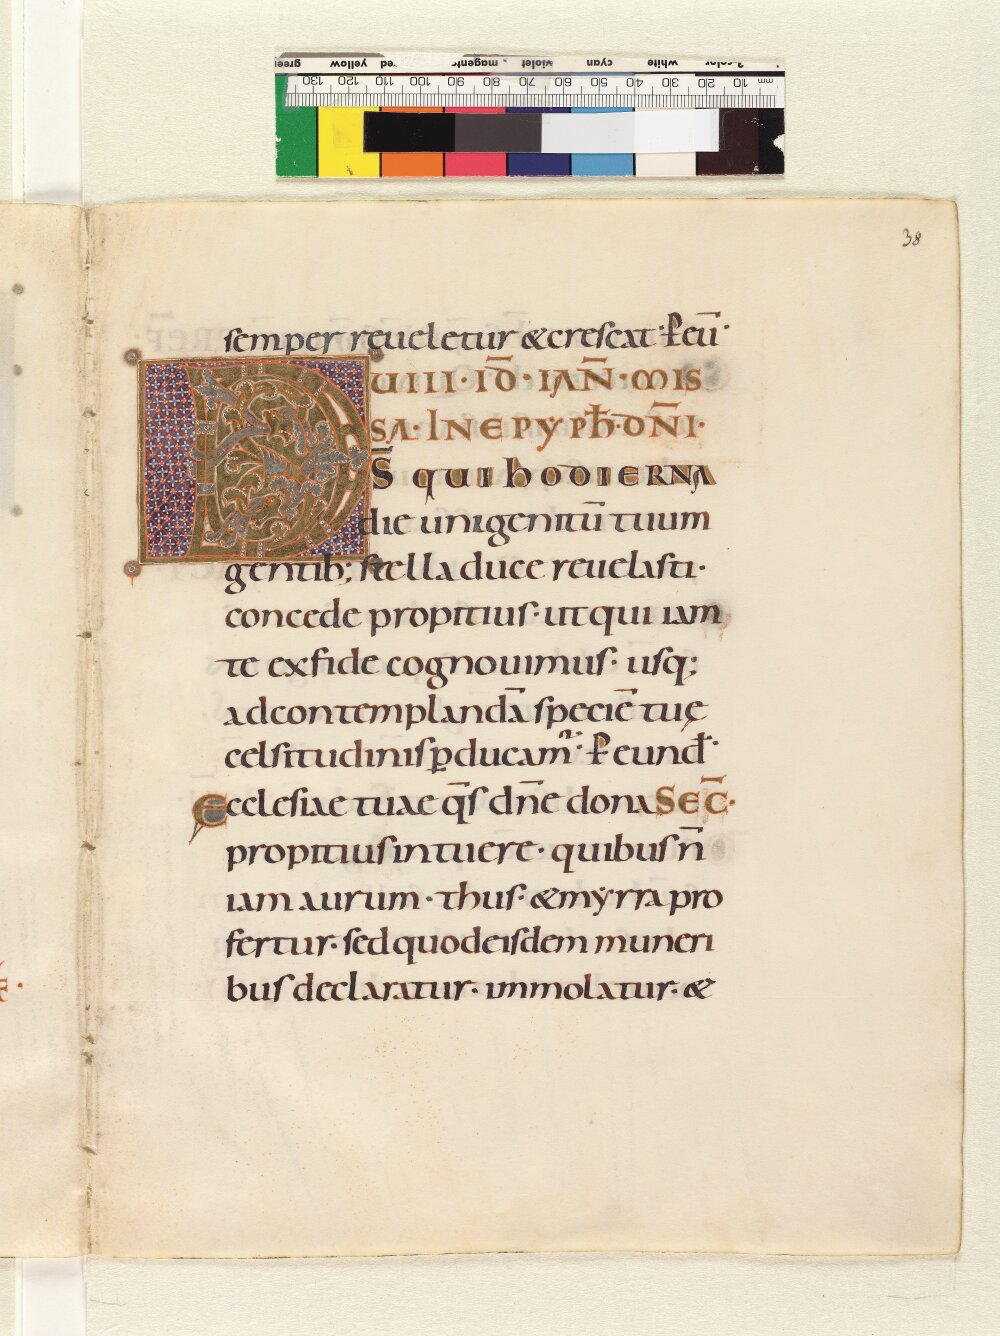 green yellow red magenta violet cyan white 3-color
mm 10 20 30 40 50 60 70 80 90 100 110 120 130
38
semper reueletur &crescat· ꝑ eū·
UIII·ID̄·IAN̄·MIS
SA·INEPYPH̄·DN̄I·
DS̄ QUI HODIERNA
die unigenitū tuum
gentib; stella duce reuelasti·
concede propitius· ut qui iam
te ex fide cognouimus· usq;
ad contemplandā speciē tuę
celsitudinis ꝑducamur· ꝑ eund·
Ecclesiae tuae q̄s dn̄e dona SEC̄·
propitius intuere· quibus n̄
iam aurum· thus· &myrra pro
fertur· sed quod eisdem muneri
bus declaratur· immolatur· &
F·